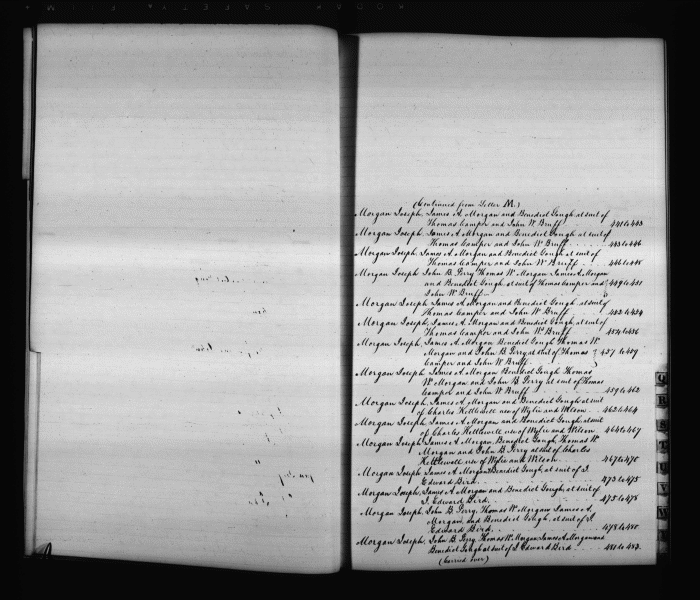 (Continued from Letter M.)
Morgan Joseph, James A. Morgan and Benedict Gough at suit of
Thomas Camper and John W. Bruff 441 to 443
Morgan Joseph, James A. Morgan and Benedict Gough at suit of
Thomas Camper and John W. Bruff 443 to 446
Morgan Joseph, James A. Morgan and Benedict Gough at suit of
Thomas Camper and John W. Bruff 446 to 448
Morgan Joseph John B. Perry Thomas W. Morgan James A. Morgan
and Benedict Gough at suit of Thomas Camper and 449 to 451
John W. Bruff
Morgan Joseph James A. Morgan and Benedict Gough at suit of
Thomas Camper and John W. Bruff 452 to 454
Morgan Joseph, James A. Morgan and Benedict Gough at suit of
Thomas Camper and John W. Bruff 454 to 456
Morgan Joseph, James A. Morgan Benedict Gough Thomas W.
Morgan and John B. Perry at suit of Thomas 457 to 459
Camper and John W. Bruff
Morgan Joseph James A. Morgan Benedict Gough Thomas
W. Morgan and John B. Perry at suit of Thomas
Camper and John W. Bruff 459 to 462
Morgan Joseph, James A. Morgan and Benedict Gough at suit
of Charles Kettlewell use of Wylie and Wilson 462 to 464
Morgan Joseph James A. Morgan and Benedict Gough at suit
of Charles Kettlewell use of Wylie and Wilson 464 to 467
Morgan Joseph James A. Morgan, Benedict Gough Thomas W.
Morgan and John B. Perry at suit of Charles
Kettlewell use of Wylie and Wilson 467 to 470
Morgan Joseph James A. Morgan & Benedict Gough, at suit of J.
Edward Bird 473 to 475
Morgan Joseph, James A. Morgan and Benedict Gough, at suit of
J. Edward Bird 475 to 478
Morgan Joseph, John B. Perry, Thomas W. Morgan James A.
Morgan, and Benedict Gough, at suit of J.
Edward Bird 478 to 480
Morgan Joseph, John B. Perry, Thomas W. Morgan James A. Morgan and
Benedict Gough at suit of J. Edward Bird 481 to 483
(Carried over)
Q
R
S
T
U
V
W